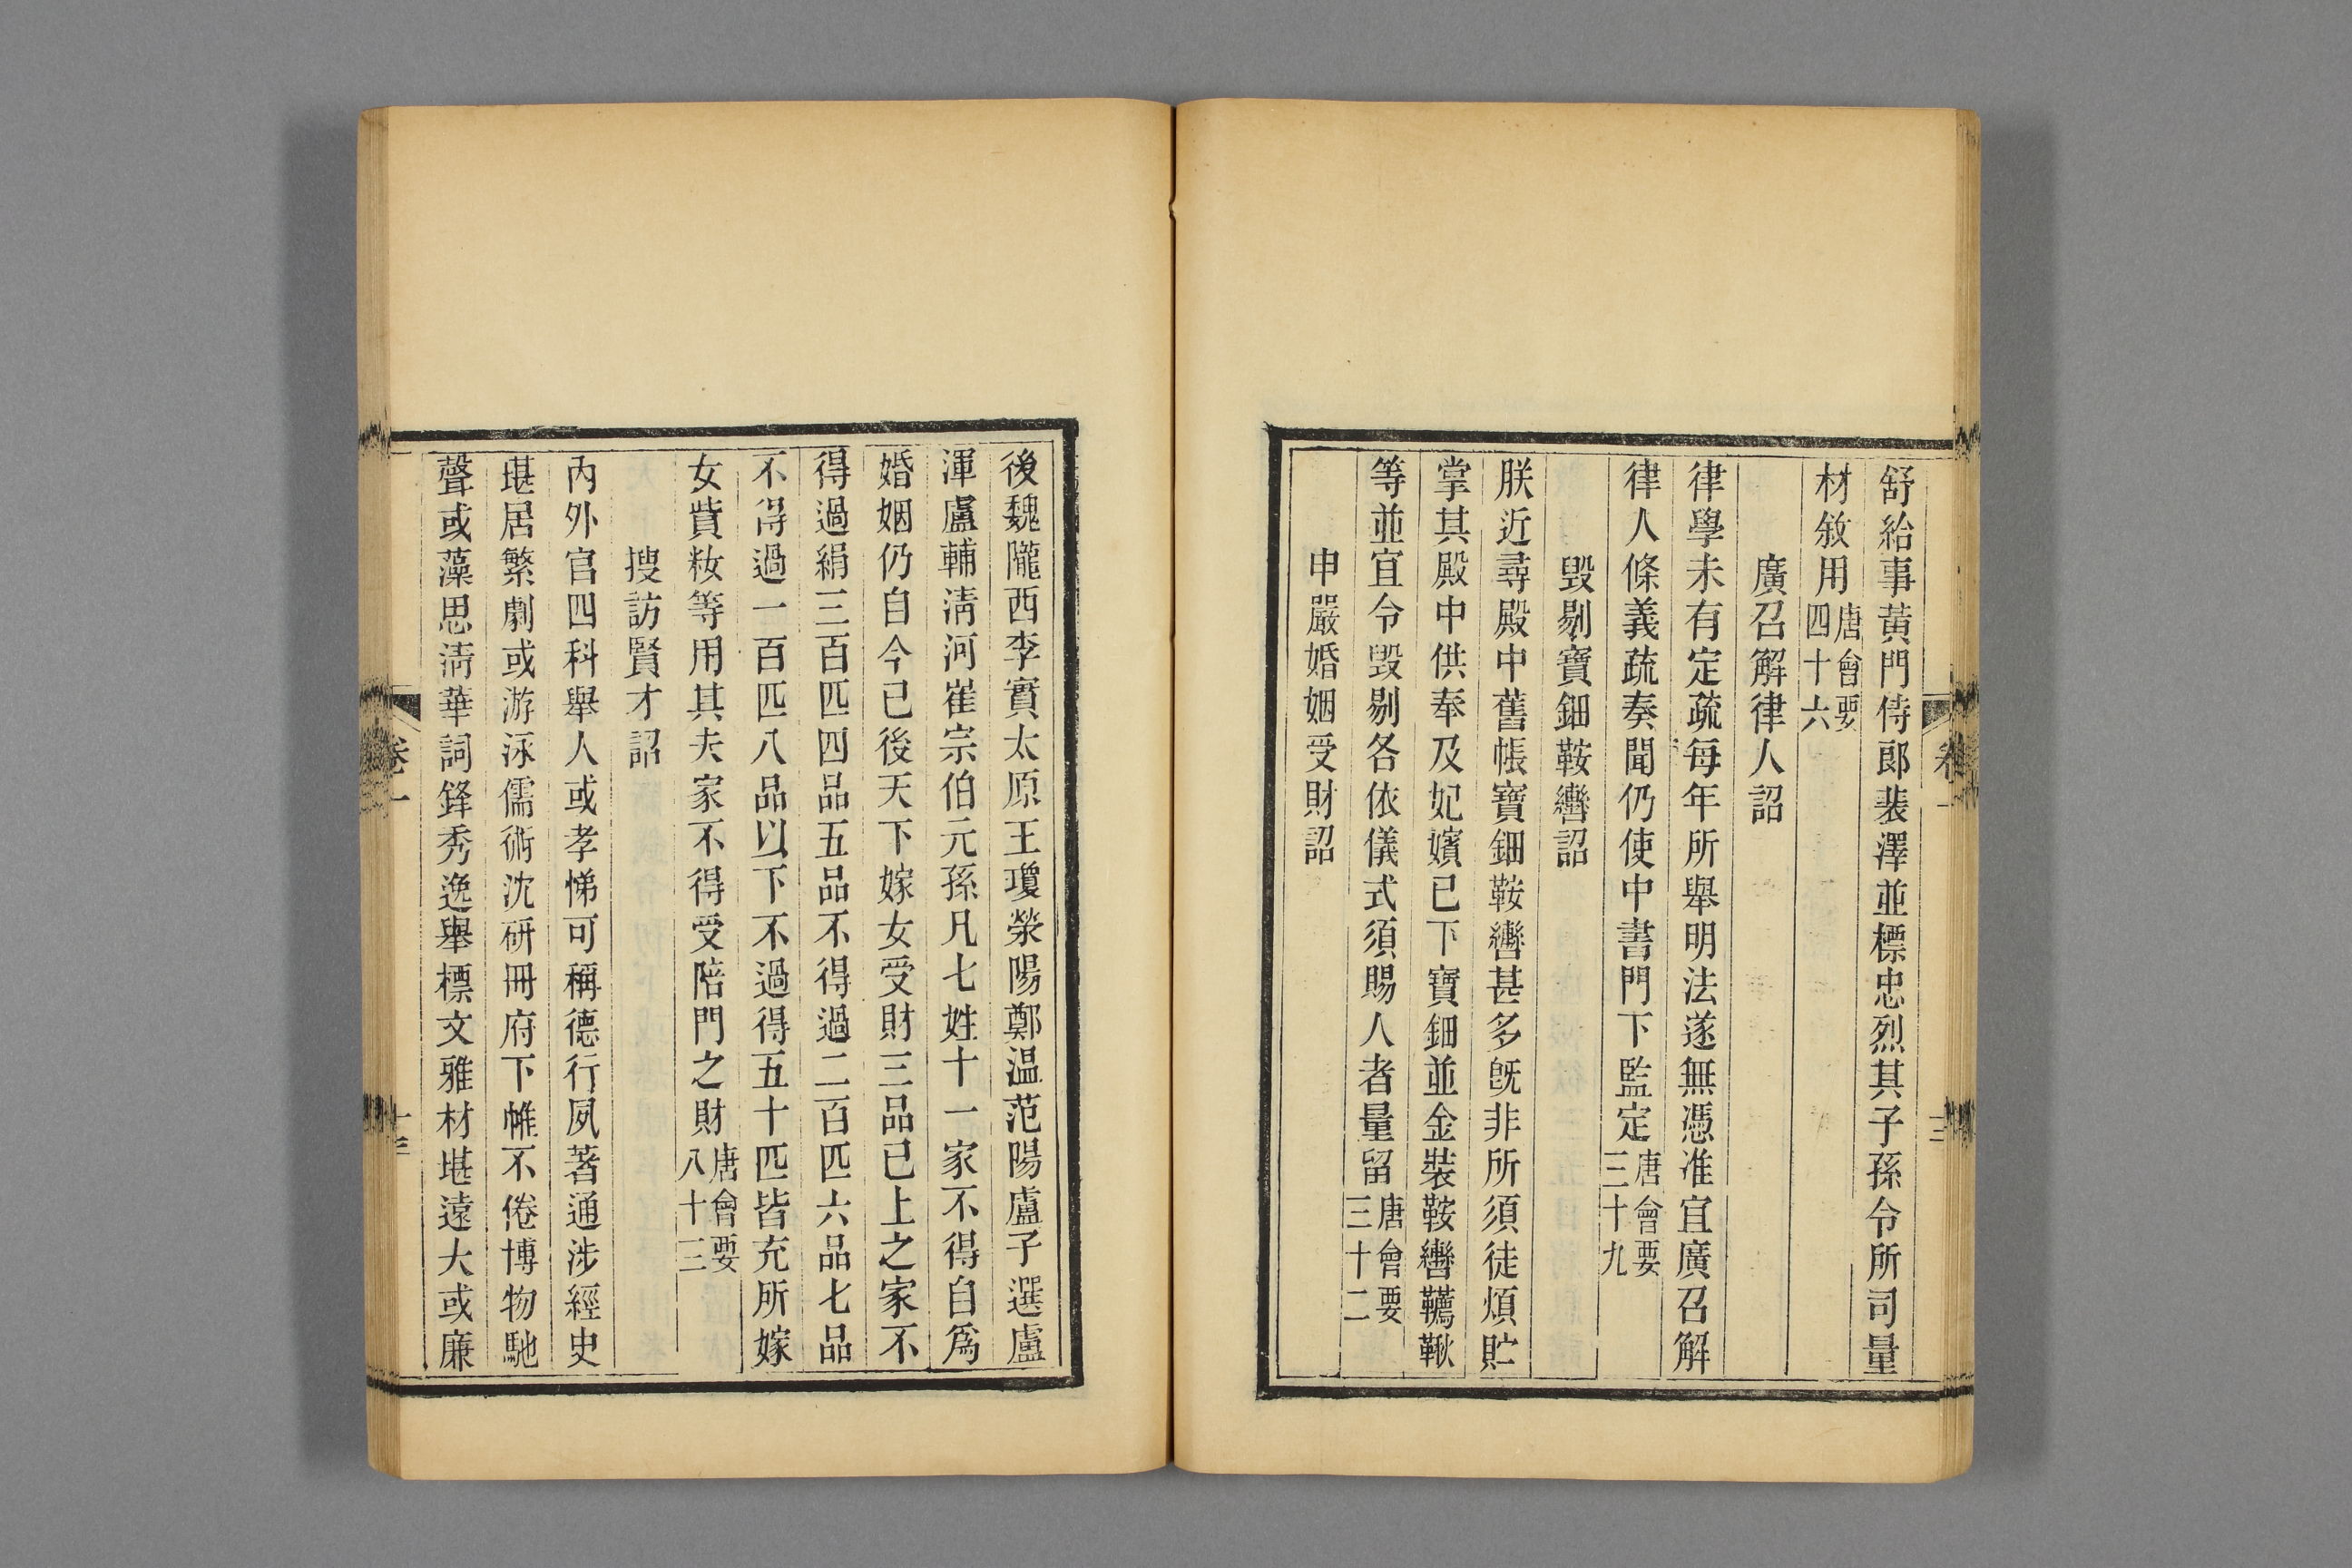 舒給事黃門侍郎裴澤並標忠烈其子孫令所司量
材敘用唐會要四十六
廣召解律人詔
律學未有定疏每年所舉明法遂無憑准宜廣召解
律人條義疏奏聞仍使中書門下監定唐會要三十九
毀剔寶鈿鞍轡詔
朕近尋殿中舊帳寶鈿鞍轡甚多旣非所須徒煩貯
掌其殿中供奉及妃嬪已下寶鈿並金裝鞍轡韉鞦
等並宜令毀剔各依儀式須賜人者量留唐會要三十二
申嚴婚姻受財詔
後魏隴西李寶太原王瓊滎陽鄭温范陽盧子選盧
渾盧輔淸河崔宗伯元孫凡七姓十一家不得自爲
婚姻仍自今已後天下嫁女受財三品已上之家不
得過絹三百匹四品五品不得過二百匹六品七品
不得過一百匹八品以下不過得五十匹皆充所嫁
女貲妝等用其夫家不得受陪門之財唐會要八十三
搜訪賢才詔
內外官四科舉人或孝悌可稱德行夙著通涉經史
堪居繁劇或游泳儒術沈研冊府下帷不倦博物馳
聲或藻思淸華詞鋒秀逸舉標文雅材堪遠大或廉
卷一